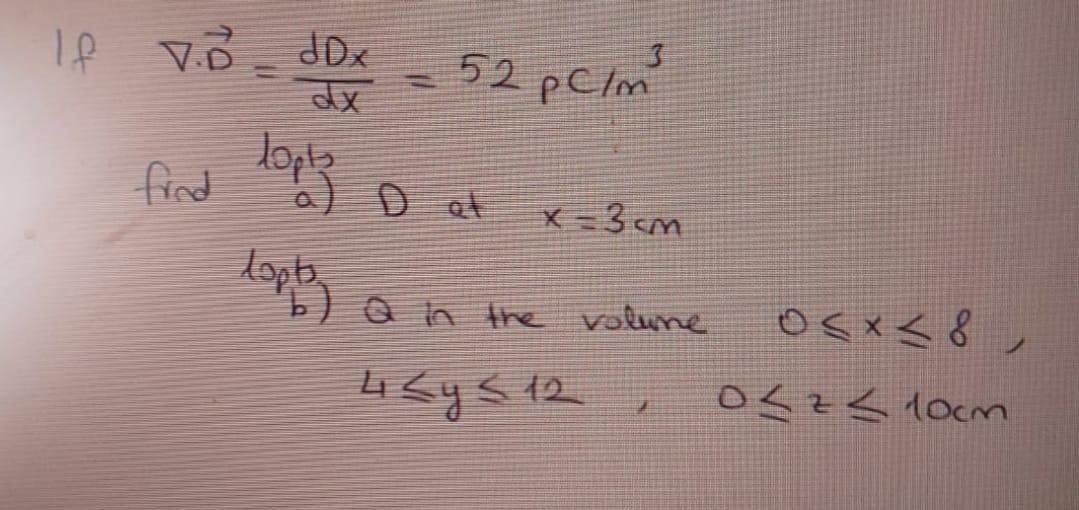 If ∇.D⃗ = dDx/dx = 52 pC/m³
10pts
find a) D at x = 3 cm
10pts
b) Q in the volume 0 ≤ x ≤ 8 ,
4 ≤ y ≤ 12 , 0 ≤ z ≤ 10cm